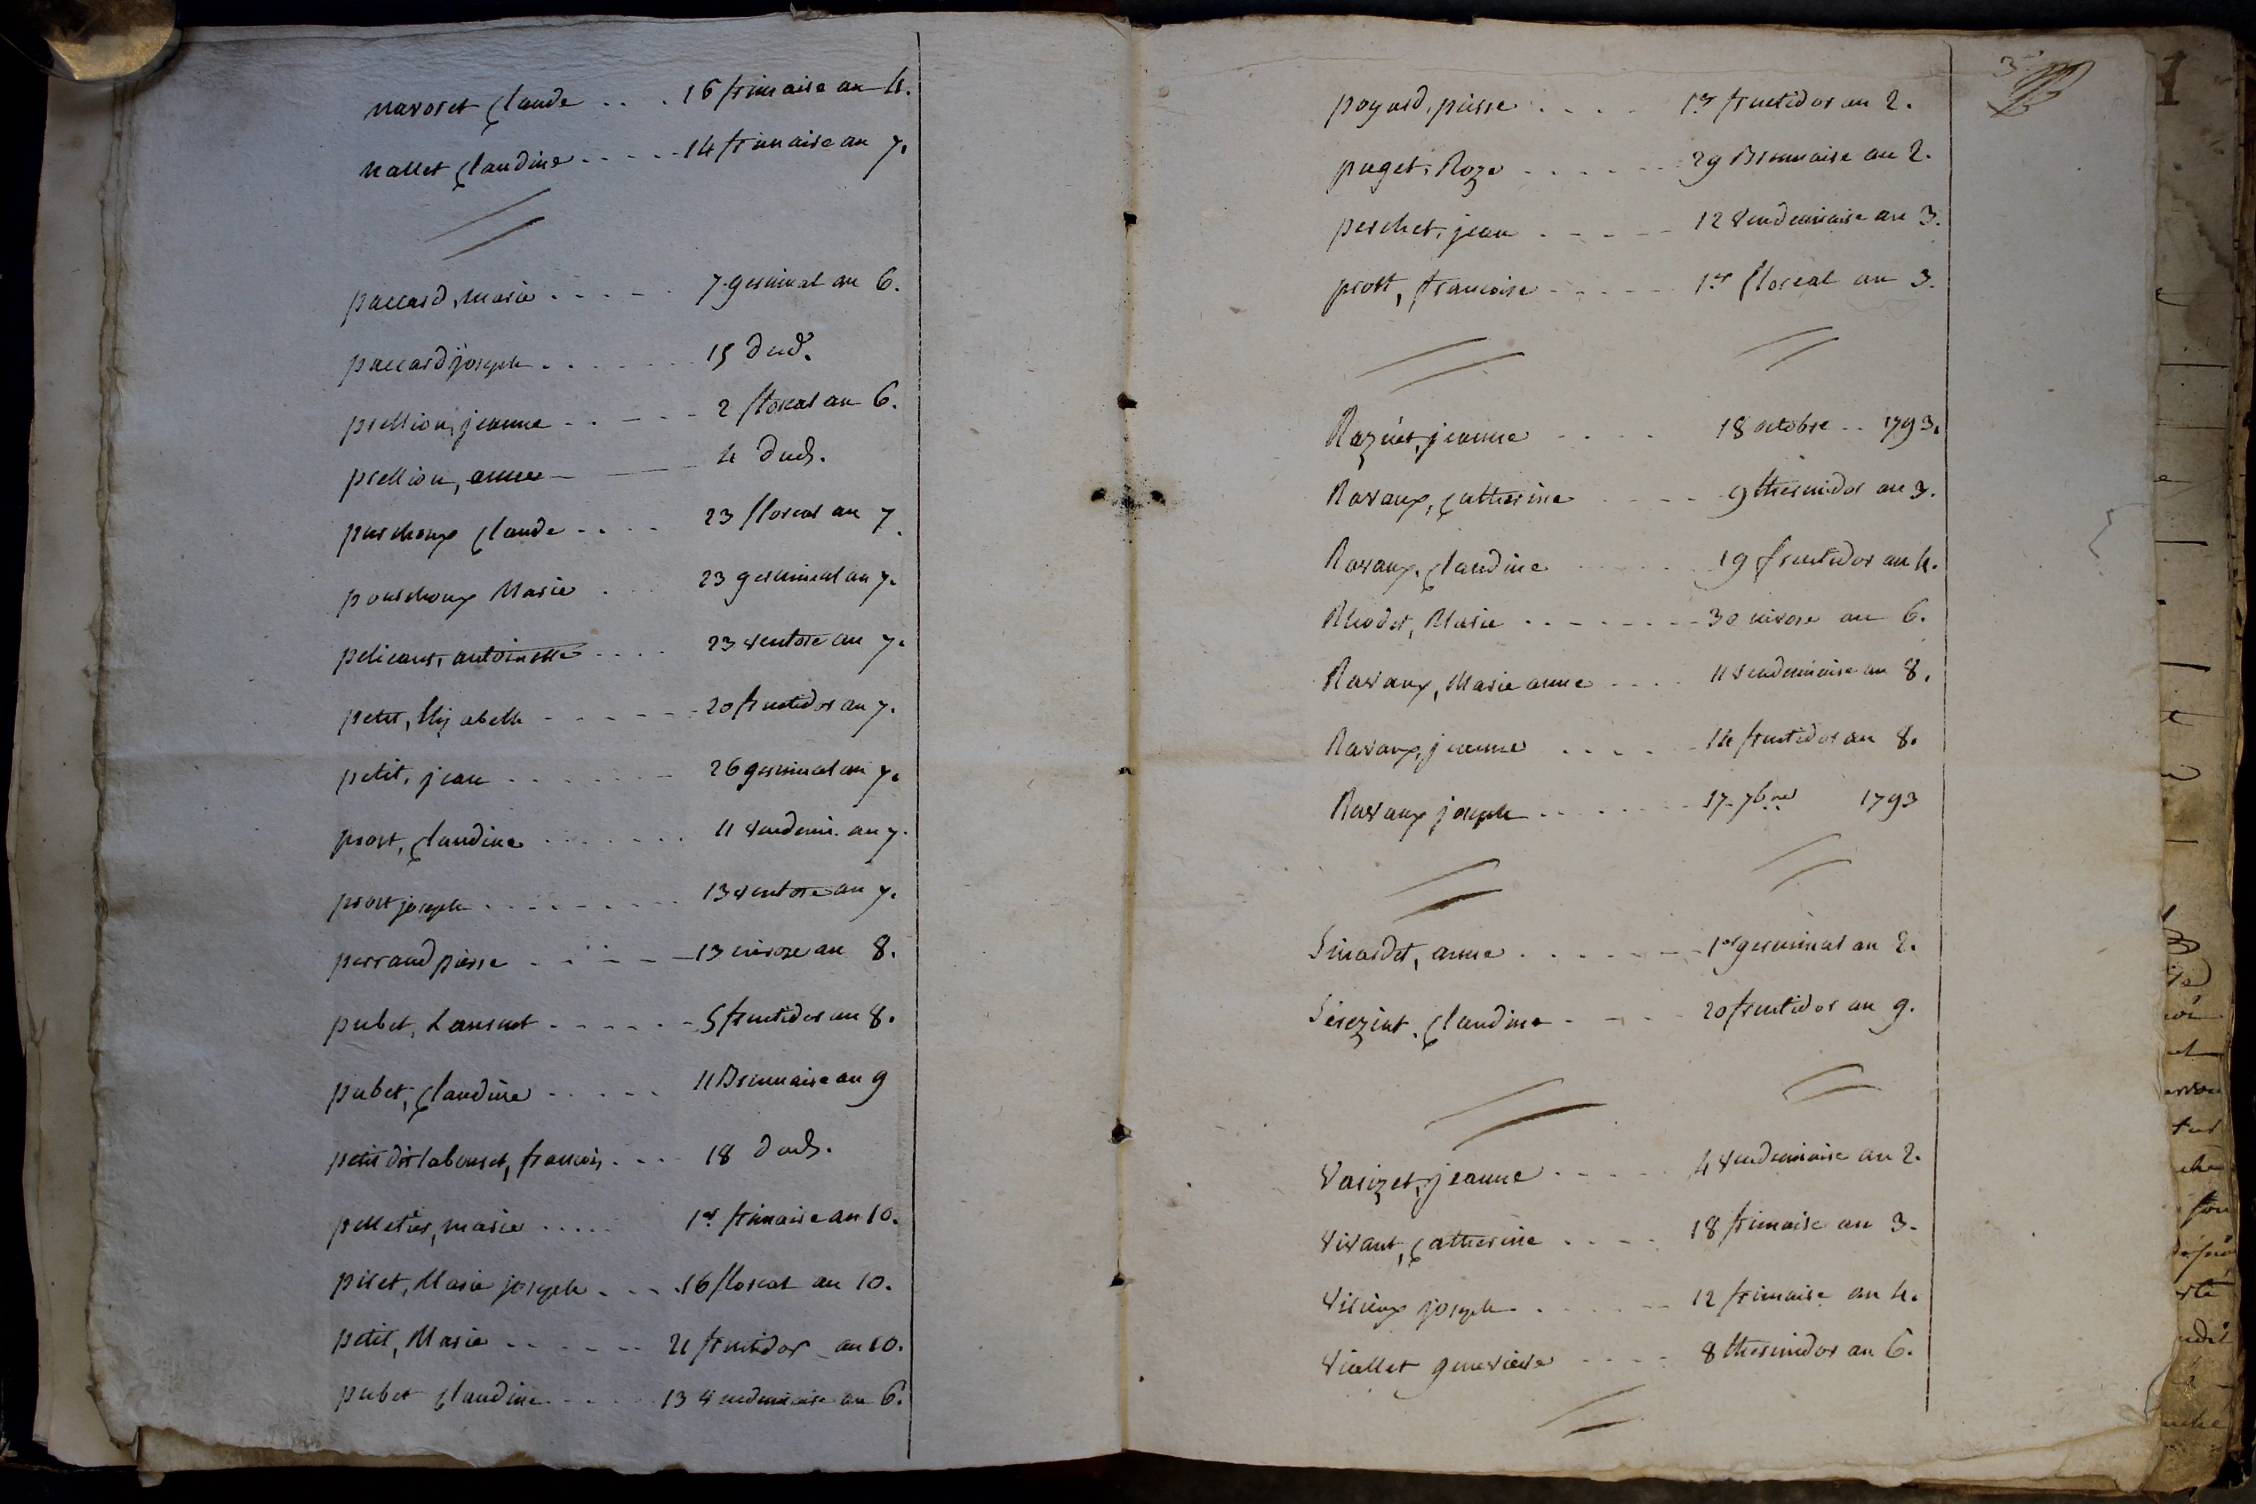 Navoret Claude . . . 16 frimaire an 4.
Nallet Claudine . . . . 14 frimaire an 7.
paccard, Marie . . . . . 7 germinal an 6.
paccard joseph . . . . . . 15 dud.
prellion, jeanne . . . . . 2 floreal an 6.
prellion, anne 4 dud.
Claude . . . . 23 floreal an 7
Marie . 23 germinal an 7.
pelicant, antoinette . . . . 23 ventose an 7.
petit, Elizabeth . . . . . . 20 fructidor an 7.
petit, jean . . . . . . . 26 germinal an 7.
prost, Claudine . . . . . . . 11 vendemi. an 7.
prost joseph . . . . . . . . 13 ventose an 7.
perraud pierre . . . . . 13 nivoze an 8.
pubet, Laurent . . . . . . 5 fructidor an 8.
pubet, Claudine . . . . . 11 Brumaire an 9
petit dit labouret, francois . . . 18 dud.
pelletier, marie . . . . . 1er frimaire an 10.
piret, Marie joseph . . . 16 floreal an 10.
petit, Marie . . . . . . 21 fructidor an 10.
pubet Claudine . . . . . 13 vendemiaire an 6.
3
poyard, pierre . . . . 1er fructidor an 2.
puget, Roze . . . . . . 29 Brumaire an 2.
perchet, jean . . . . . 12 vendemiaire an 3.
prost, francoise . . . . . 1er floreal an 3.
jeanne . . . . 18 octobre . . 1793.
Ravaux, Catherine . . . . 9 thermidor an 3.
Ravaux, Claudine . . . . . 19 fructidor an 4.
Rhodet, Marie . . . . . . . 30 nivose an 6.
Ravaux, Marie anne . . . . 11 vendemiaire an 8.
Ravaux, jeanne . . . . . 14 fructidor an 8.
Ravaux joseph . . . . . . . 17 7bre 1793
Sinardet, anne . . . . . . . 1er germinal an 2.
Serezint, Claudine . . . . 20 fructidor an 9.
Varizet, jeanne . . . . . 4 vendemiaire an 2.
Vivant, Catherine . . . . 18 frimaire an 3.
Virieux joseph . . . . . . 12 frimaire an 4.
Viallet genevieve . . . . 8 thermidor an 6.